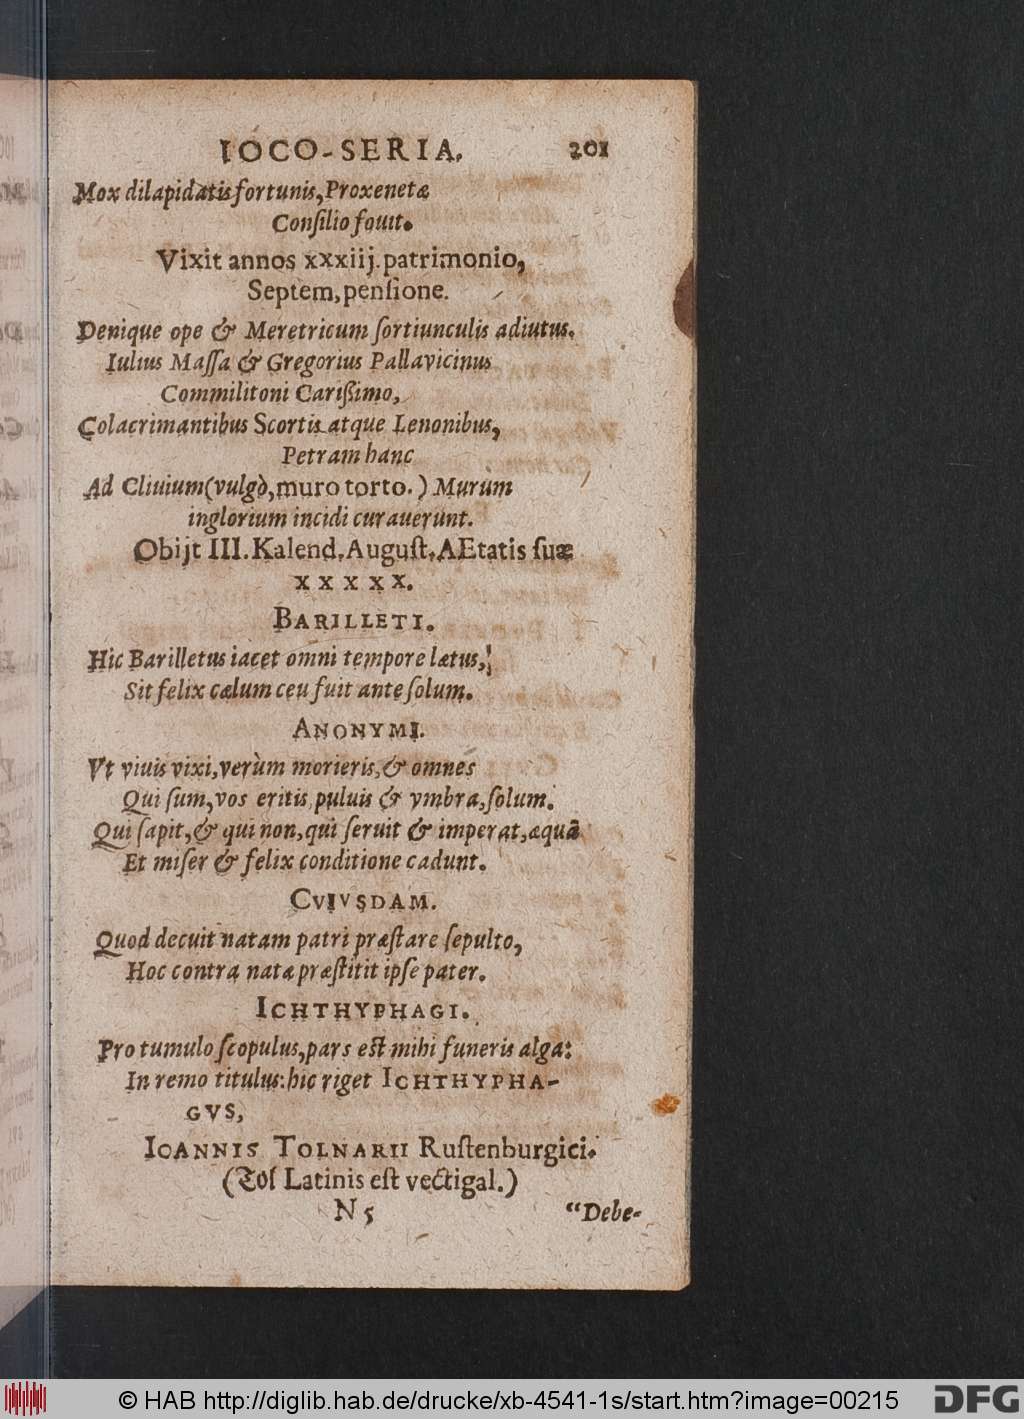 IOCO-SERIA. 201
Mox dilapidatis fortunis, Proxenetæ
Conſilio fouit.
Vixit annos xxxiij. patrimonio,
Septem, penſione.
Denique ope & Meretricum ſortiunculis adiutus.
Iulius Maſſa & Gregorius Pallavicinus
Commilitoni Carißimo,
Colacrimantibus Scortis atque Lenonibus,
Petram hanc
Ad Cliuium (vulgò, muro torto.) Murum
inglorium incidi curauerunt.
Obijt III. Kalend. Auguſt. AEtatis ſuæ
XXXXX.
BARILLETI.
Hic Barilletus iacet omni tempore lætus,
Sit felix cælum ceu fuit ante ſolum.
ANONYMI.
Vt viuis vixi, verùm morieris, & omnes
Qui ſum, vos eritis puluis & vmbra, ſolum.
Qui ſapit, & qui non, qui ſeruit & imperat, æquâ
Et miſer & felix conditione cadunt.
CVIVSDAM.
Quod decuit natam patri præſtare ſepulto,
Hoc contra natæ præſtitit ipſe pater.
ICHTHYPHAGI.
Pro tumulo ſcopulus, pars est mihi funeris alga:
In remo titulus: hic riget ICHTHYPHA-
GVS,
IOANNIS TOLNARII Ruſtenburgici.
(Tol Latinis eſt vectigal.)
N 5 “Debe-
© HAB http://diglib.hab.de/drucke/xb-4541-1s/start.htm?image=00215 DFG